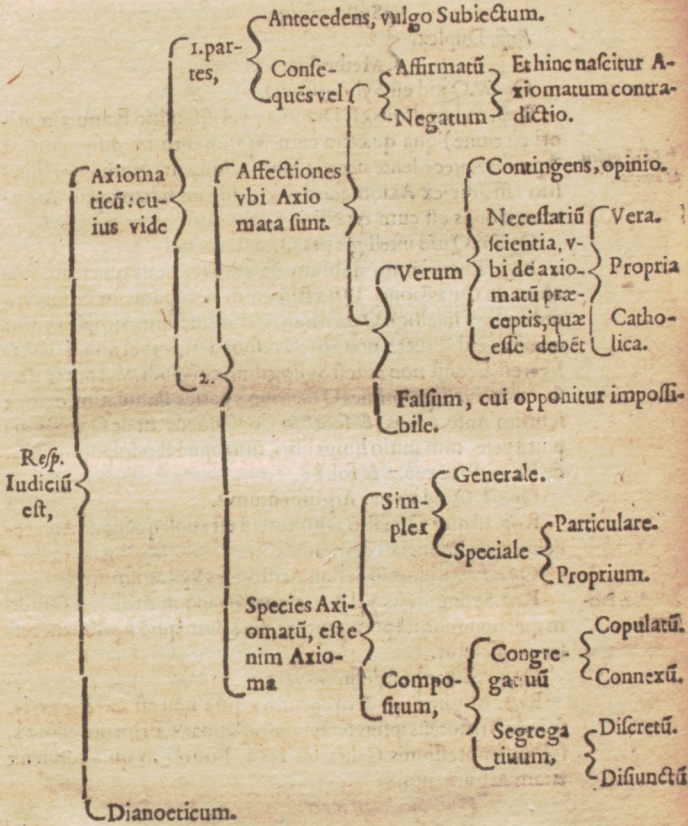 Resp.
Iudiciũ
est,
Axioma
ticũ: cu-
ius vide
1. par-
tes,
Antecedens, vulgo Subiectum.
Conse-
quẽs vel
Affirmatũ
Negatum
Et hinc nascitur A-
xiomatum contra-
dictio.
2.
Affectiones
vbi Axio
mata sunt.
Verum
Contingens, opinio.
Necessariũ
scientia, v-
bi de axio-
matũ præ-
ceptis, quæ
esse debẽt
Vera.
Propria
Catho-
lica.
Falsum, cui opponitur impossi-
bile.
Species Axi-
omatũ, est e
nim Axio-
ma
Sim-
plex
Generale.
Speciale
Particulare.
Proprium.
Compo-
situm,
Congre-
gatiuũ
Copulatũ.
Connexũ.
Segrega
tiuum,
Discretũ.
Disiunctũ
Dianoeticum.